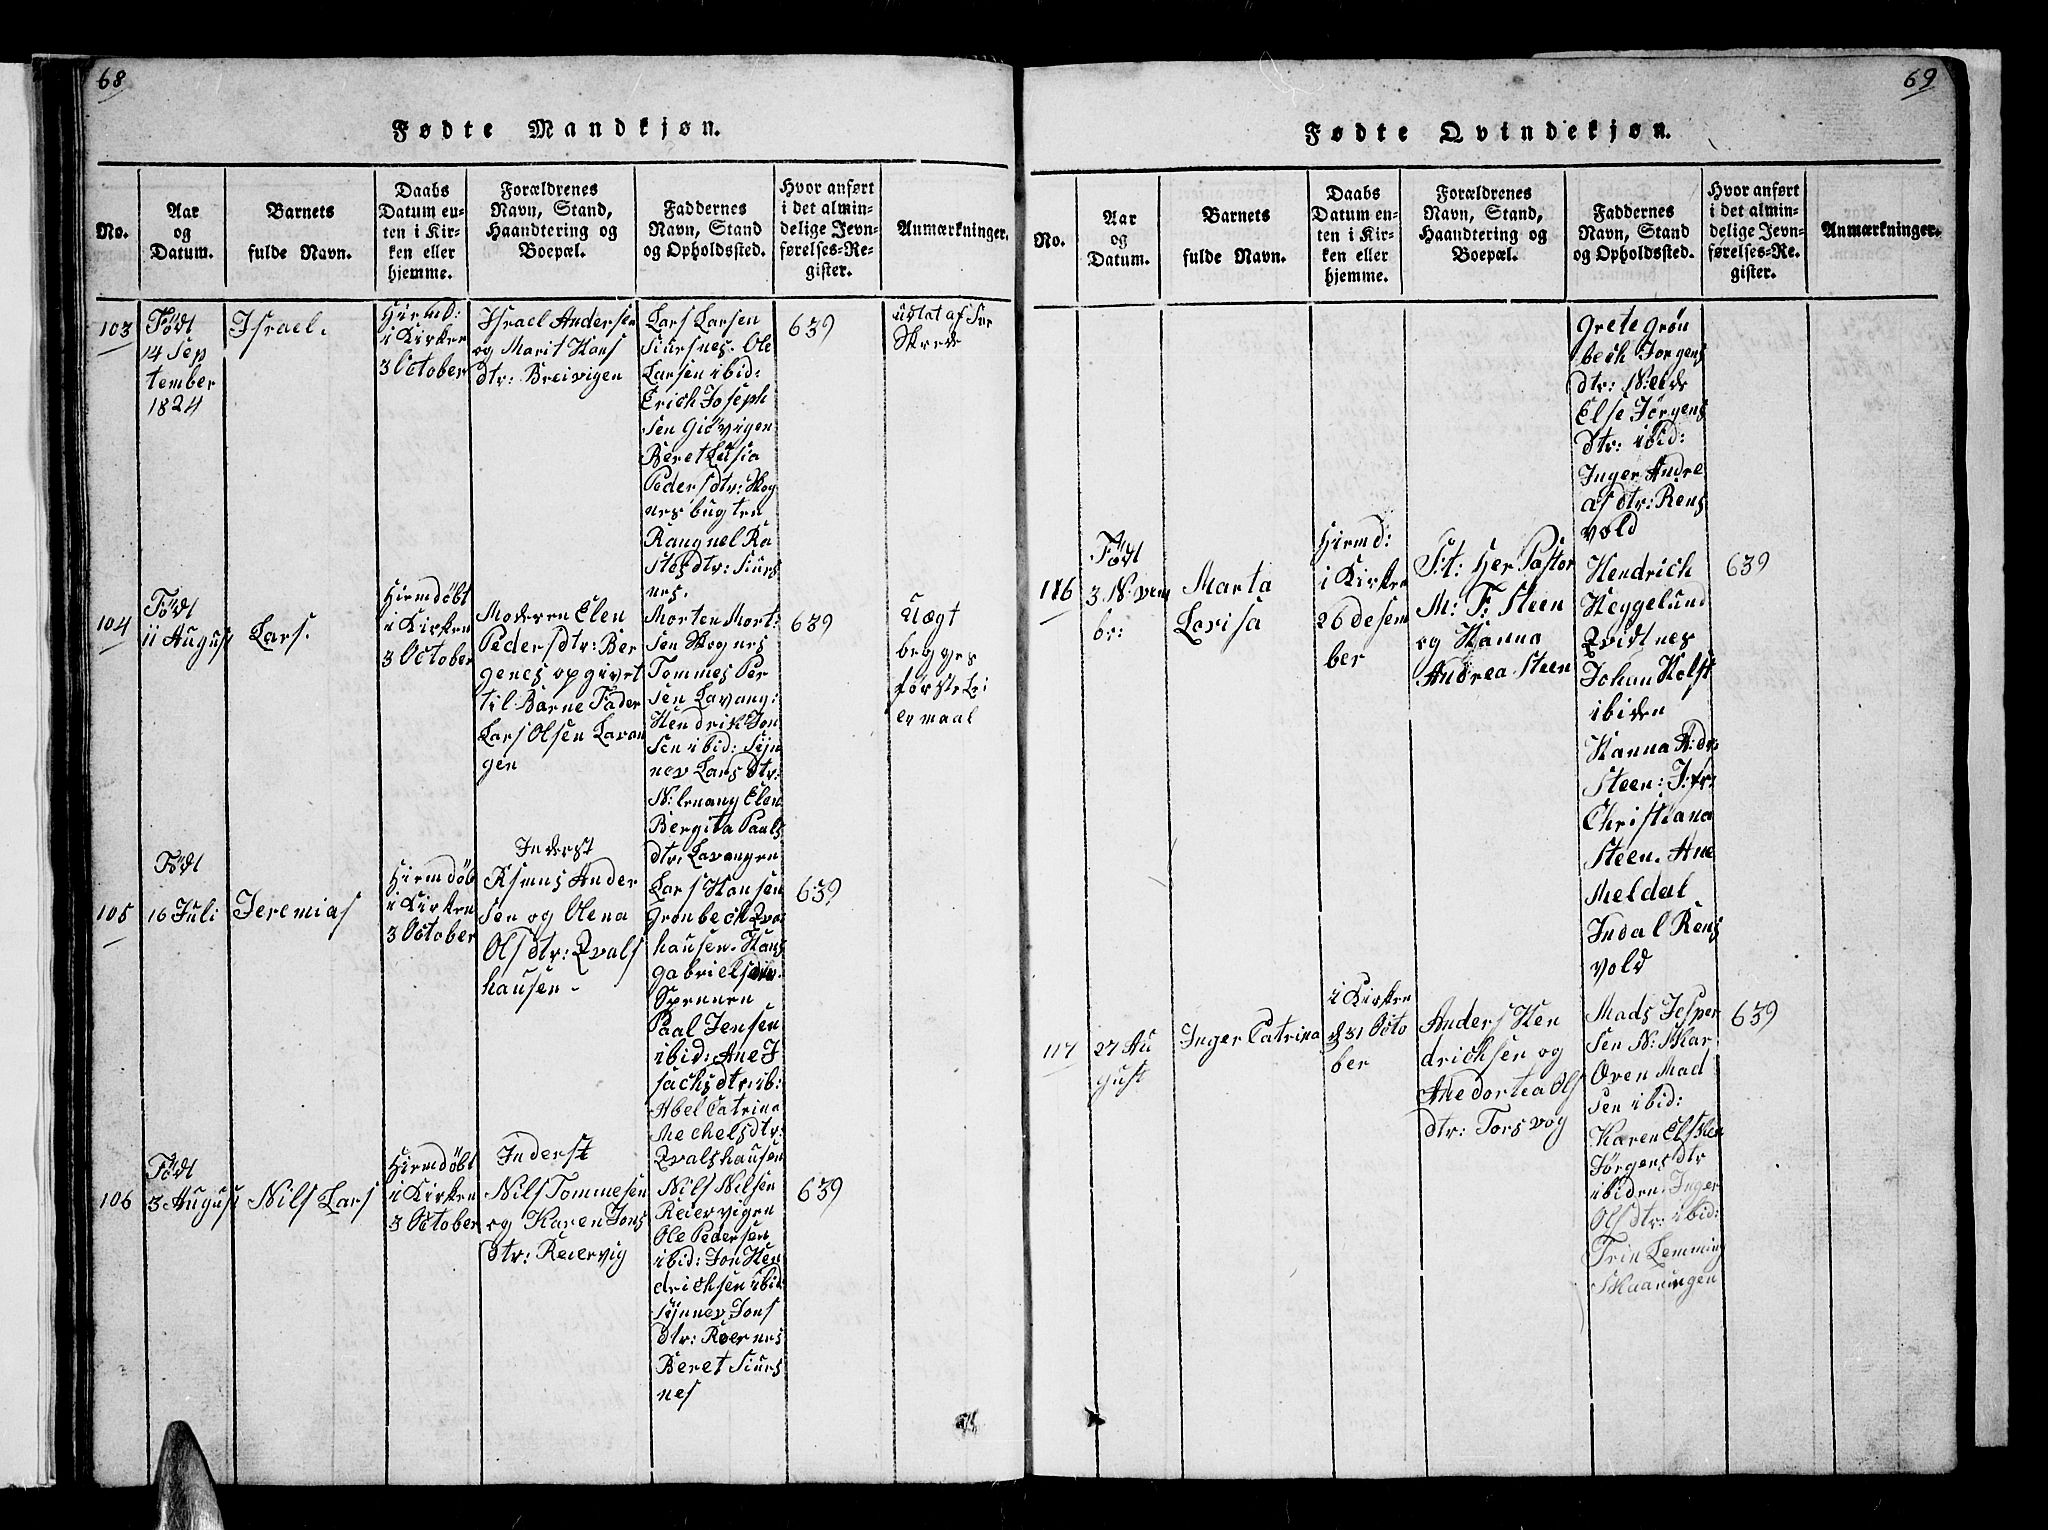 68
Fødte Mandkjøn.
No.
Aar
og
Datum.
Barnets
fulde Navn.
Daabs
Datum en-
ten i Kir-
ken eller
hjemme.
Forældrenes
Navn, Stand,
Haandtering og
Boepæl.
Faddernes
Navn, Stand
og Opholdssted.
Hvor anført
i det almin-
delige Jevn-
førelses-Re-
gister.
Anmærkninger.
103
Födt
14 Sep
tember
1824
Israel.
Hiemd:
i Kirken
3 October
Israel Andersen
og Marit Hans
dtr: Breivigen
Lars Larsen
Siursnes. Ole
Larsen ibid:
Erich Joseph
sen Giövigen
Beret Lusia
Pedersdtr: Skog
nesbugten
Rangnel Ra
stesdtr: Siurs
nes.
639
udlat af For
104
Födt
11 August
Lars.
Hiemdöbt
i Kirken
3 October
Moderen Elen
Pedersdtr: Ber
genes opgivet
til Barne Fader
Lars Olsen Lavan
gen
Morten Mort:
sen Skognes
Tommes Per
sen Lavang:
Hendrik Jon
sen ibid: Sijn
nev Larsdtr:
Elen
Bergita Pauls
dtr: Lavangen
639
Uægt
begges
förste Lei
ermaal
105
Födt
16 Juli
Jeremias
Hiemdöb
i Kirken
3 October
Inderst
Rsmus Ander
sen og Olena
Olsdtr: Qvals
hausen-
Lars Hansen
Grönbech Qval
hausen. Hans
Gabrielsen
Spennen
Paal Jensen
ibid: Ane I
sachsdtr: ib:
Abel Catrina
Mechelsdtr:
Qvalshausen
639
106
Födt
3 August
Nils Lars
Hiemdöbt
i Kirken
3 October
Inderst
Nils Tommesen
og Karen Jons
dtr: Reiervig
Nils Nilsen
Reiervigen
Ole Pedersen
ibid: Jon Hen
drichsen ibid
Sijnnev Jons
dtr: Roernes
Beret Siurs
nes
639
69
Fødte Qvindekjøn.
No.
Aar
og
Datum.
Barnets
fulde Navn.
Daabs
Datum en-
ten i Kir-
ken eller
hjemme.
Forældrenes
Navn, Stand,
Haandtering og
Boepæl.
Faddernes
Navn, Stand
og Opholdssted.
Hvor anført
i det almin-
delige Jevn-
førelses-Re-
gister.
Anmærkninger.
Grete Grön
bech Jorgens
dtr: N:eide
Else Jörgens
dtr: ibid:
Inger Andre
asdtr: Rens
vold
116
Födt
3 N:vem
br:
Marta
Lovisa
Hiemd:
i Kirken
26 desem
ber
S:t: Her Pastor
M: F: Steen
og Hanna
Andrea Steen
Hendrich
Heggelund
Qvidtnes
Johan Holst
ibiden
Hanna A:dr:
Steen: J:fr:
Christiana
Steen. Ane
Meldal
Indal Rens
vold
639
117
27 Au
gust
Inger Catrina
i Kirken
d 31 Octo
ber
Anders Hen
drichsen og
Ane dortea Ols
dtr: Torsvog
Mads Jesper
sen N: Skar
Oven Mad
sen ibid:
Karen Elsken
Jörgensdtr
ibiden. Inger
Olsdtr: ibid:
Trin Lemming
Skaaningen
639